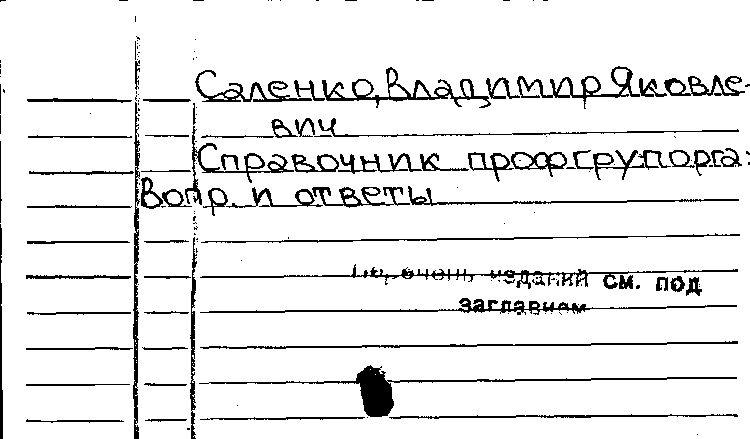 Саленко, Владимир Яковле-
вич
Справочник профгрупорга:
Вопр. и ответы
Перечень изданий см. под
заглавием